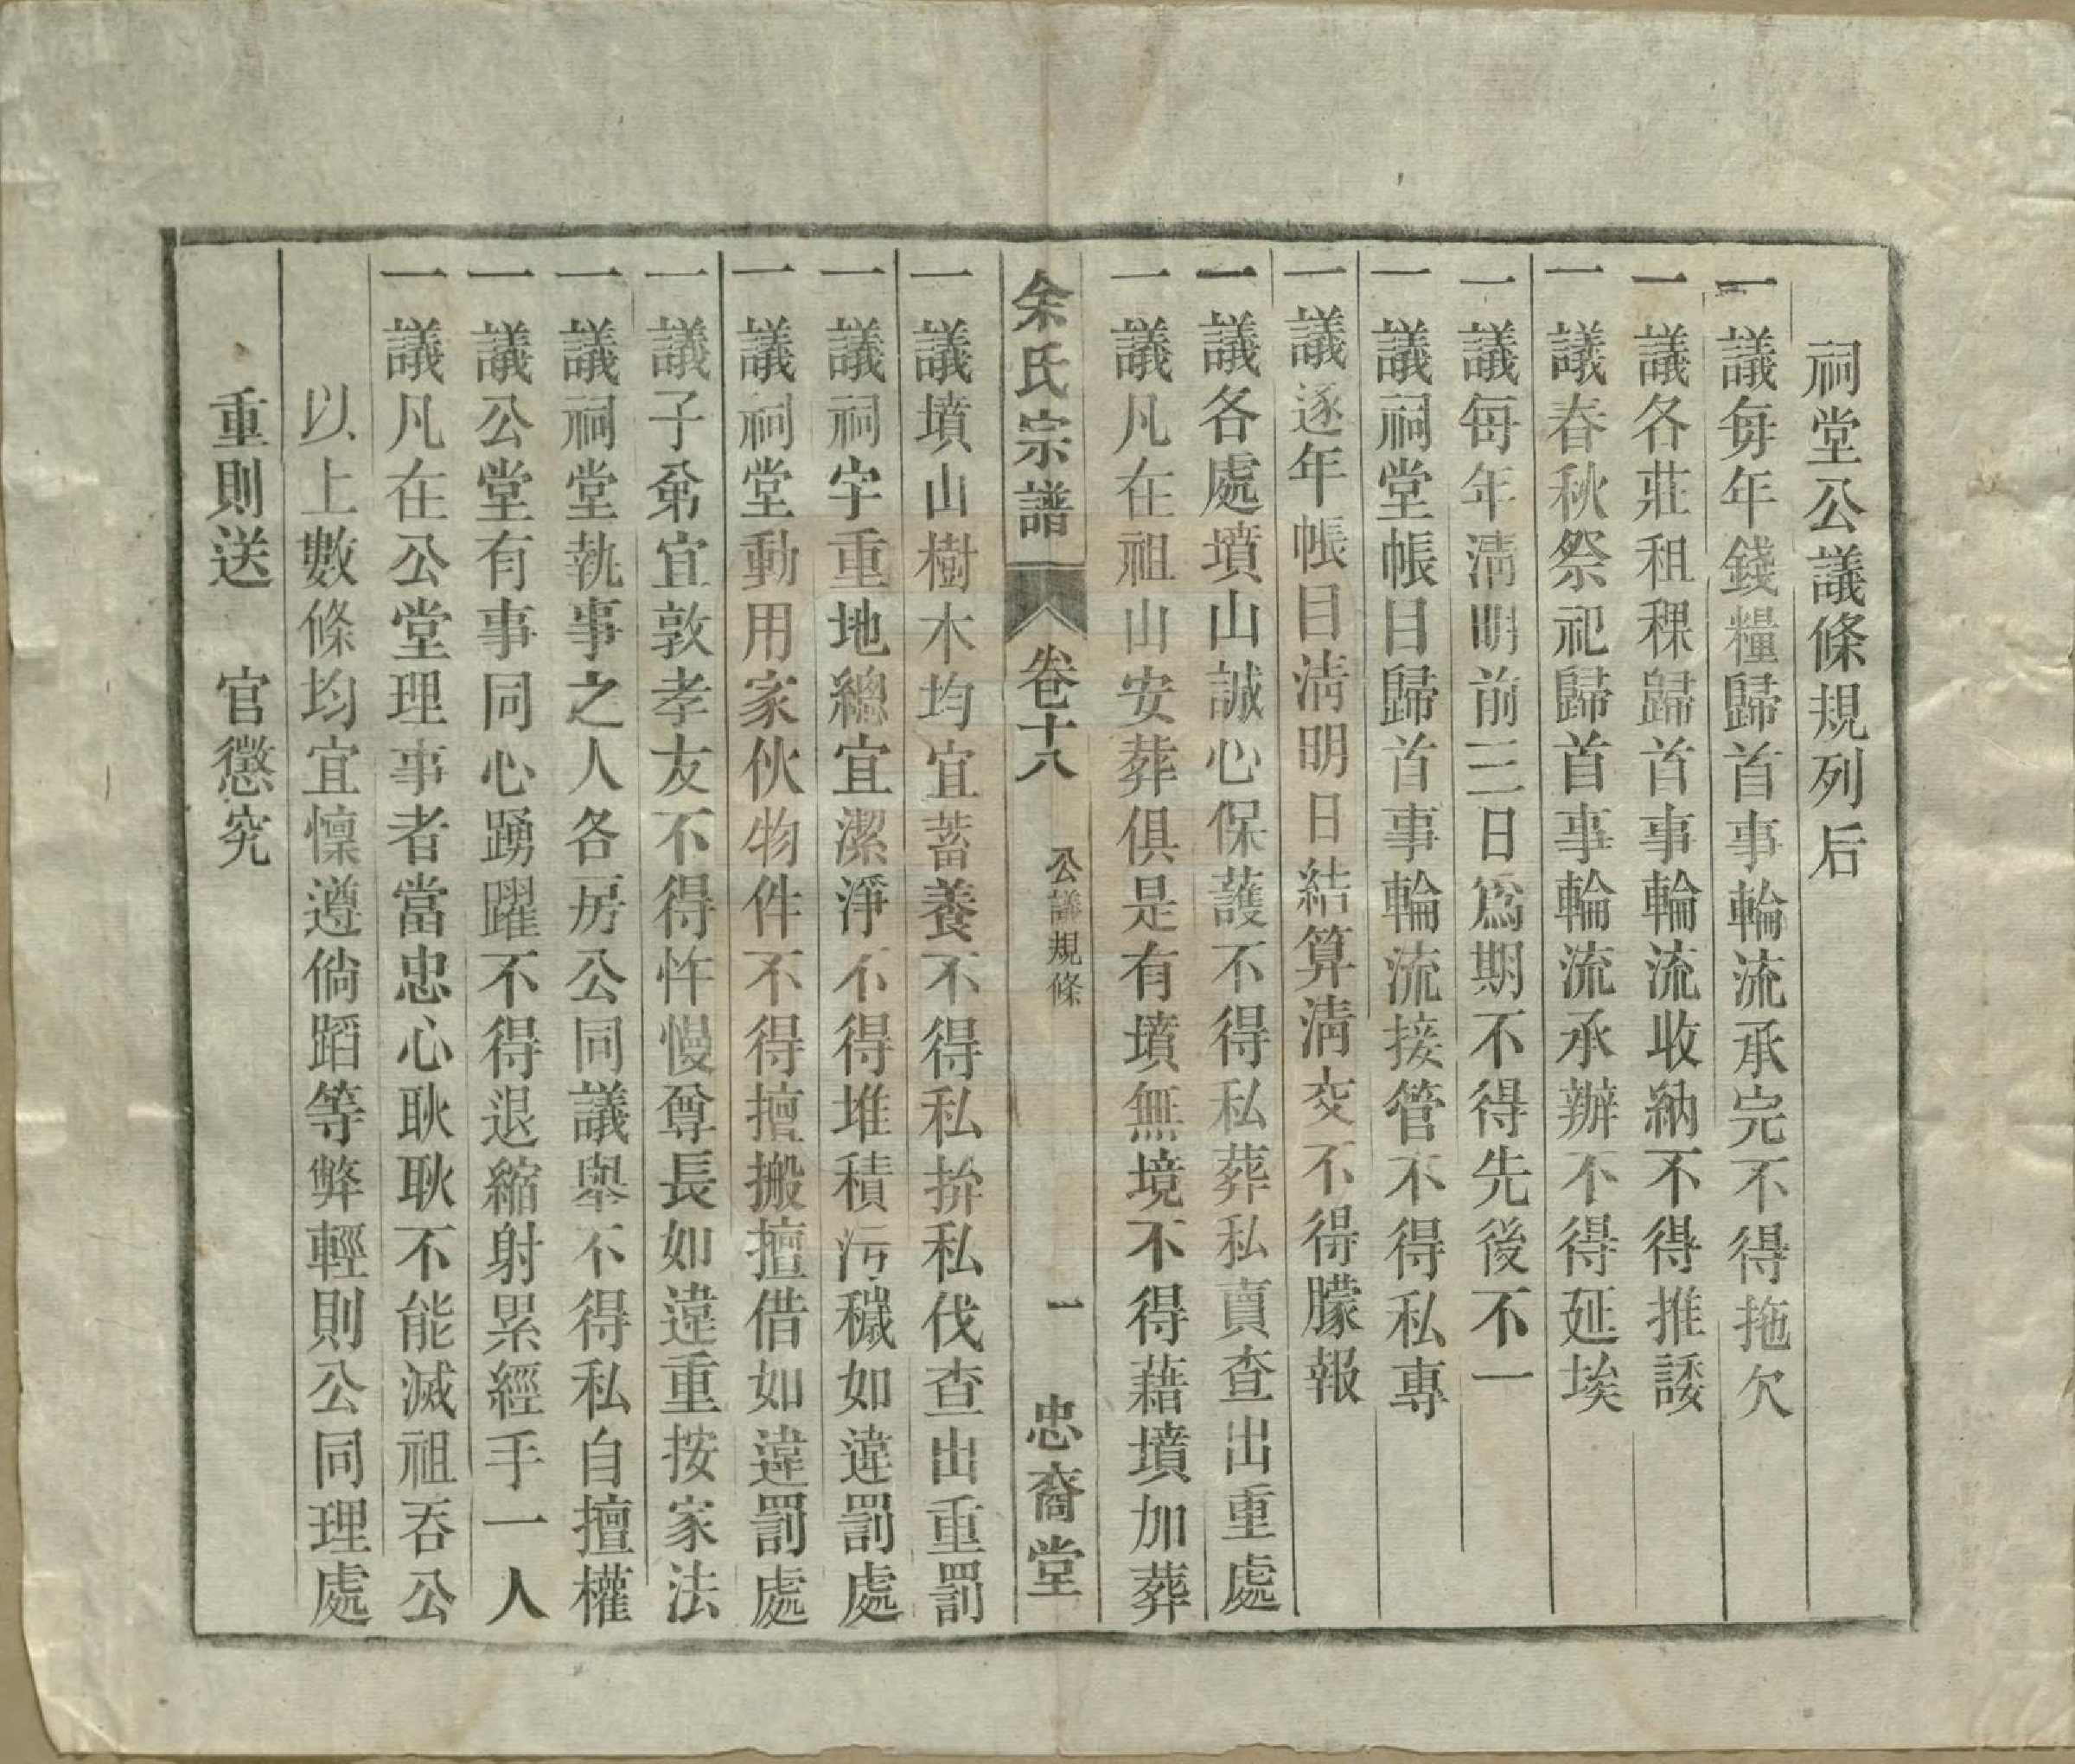 祠堂公議條規列后
一議每年錢糧歸首事輪流承完不得拖欠
一議各莊租稞歸首事輪流收納不得推諉
一議春秋祭祀歸首事輪流承辦不得延埃
一議每年淸明前三日爲期不得先後不一
一議祠堂帳目歸首事輪流接管不得私專
一議逐年帳目淸明日結算淸交不得朦報
一議各處墳山誠心保護不得私葬私賣查出重處
一議凡在祖山安葬俱是有墳無境不得藉墳加葬
余氏宗譜 卷十八 公議規條 一 忠裔堂
一議墳山樹木均宜蓄養不得私拚私伐查出重罰
一議祠宇重地總宜潔淨不得堆積污穢如違罰處
一議祠堂動用家伙物件不得擅搬擅借如違罰處
一議子弟宜敦孝友不得忤慢尊長如違重按家法
一議祠堂執事之人各房公同議舉不得私自擅權
一議公堂有事同心踴躍不得退縮射累經手一人
一議凡在公堂理事者當忠心耿耿不能滅祖吞公
以上數條均宜懍遵倘蹈等弊輕則公同理處
重則送 官懲究